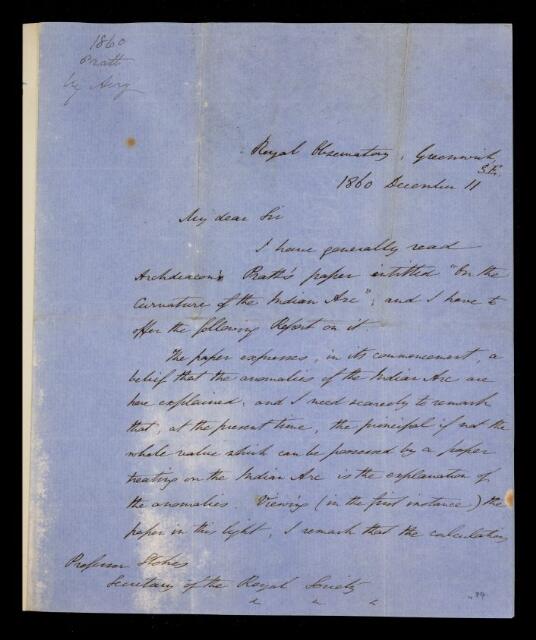 1860
Pratt
by Airy
Royal Observatory, Greenwich,
S.E.
1860 December 11
My dear Sir
I have generally read
Archdeacon Pratt's paper entitled "On the
Curvature of the Indian Arc", and I have to
offer the following Report on it.
The paper expresses, in its commencement, a
belief that the anomalies of the Indian Arc are
here explained; and I need scarcely to remark
that, at the present time, the principal if not the
whole value which can be possessed by a paper
treating on the Indian Arc is the explanation of
the anomalies. Viewing (in the first instance) the
paper in this light, I remark that the calculations
Professor Stokes
Secretary of the Royal Society